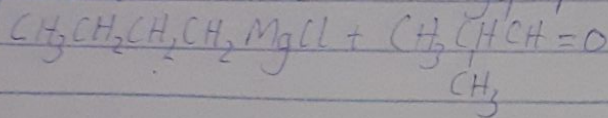 CH₃CH₂CH₂CH₂MgCl + CH₃CHCH=O
CH₃